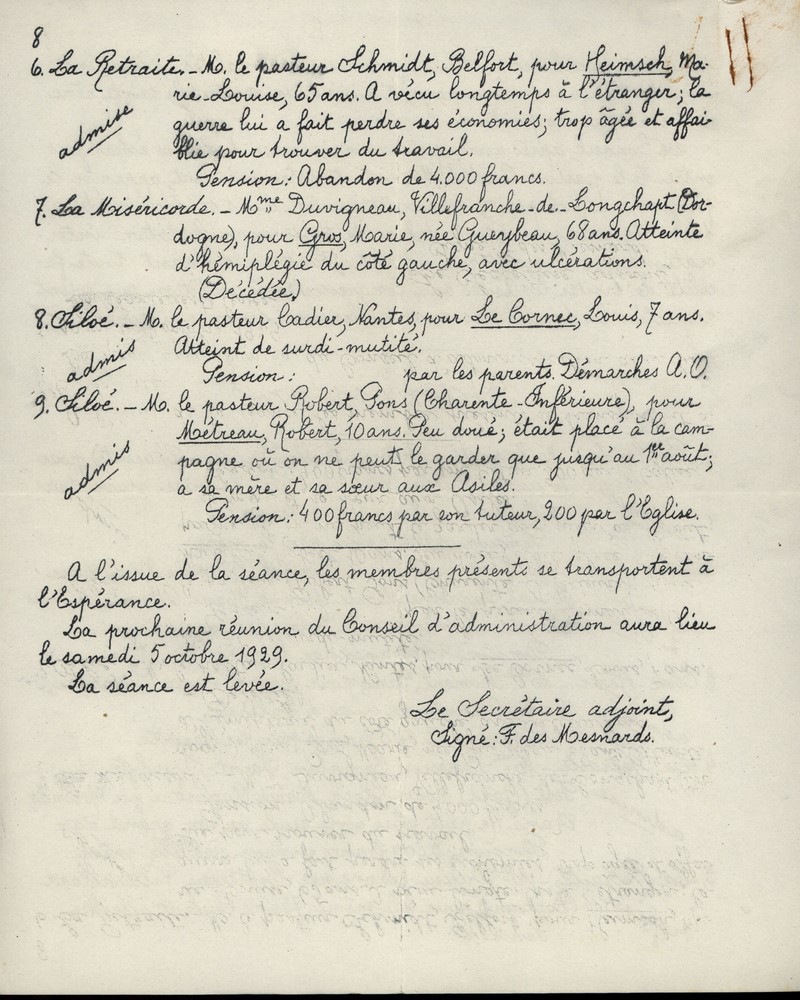 8
6. La Retraite. - M. le pasteur Schmidt, Belfort, pour Heimsch, Ma-
rie-Louise, 65 ans. A vécu longtemps à l'étranger; la
guerre lui a fait perdre ses économies; trop âgée et affai-
admise
blie pour trouver du travail.
Pension: Abandon de 4.000 francs.
7. La Miséricorde. - Mme Duvigneau, Villefranche-de-Longchapt (Dor-
dogne), pour Gros, Marie, née Gueybeau, 68 ans. Atteinte
d'hémiplégie du côté gauche, avec ulcérations.
(Décédée.)
8. Siloé. - M. le pasteur Cadier, Nantes, pour Le Cornec, Louis, 7 ans.
admis
Atteint de surdi-mutité.
Pension: par les parents. Démarches A.O.
9. Siloé. - M. le pasteur Robert, Pons (Charente-Inférieure), pour
Métreau, Robert, 10 ans. Peu doué; était placé à la cam-
admis
pagne où on ne peut le garder que jusqu'au 1er août;
a sa mère et sa sœur aux Asiles.
Pension: 400 francs par son tuteur, 200 par l'Eglise.
A l'issue de la séance, les membres présents se transportent à
l'Espérance.
La prochaine réunion du Conseil d'administration aura lieu
le samedi 5 octobre 1929.
La séance est levée.
Le Secrétaire adjoint,
Signé: F. des Mesnards.